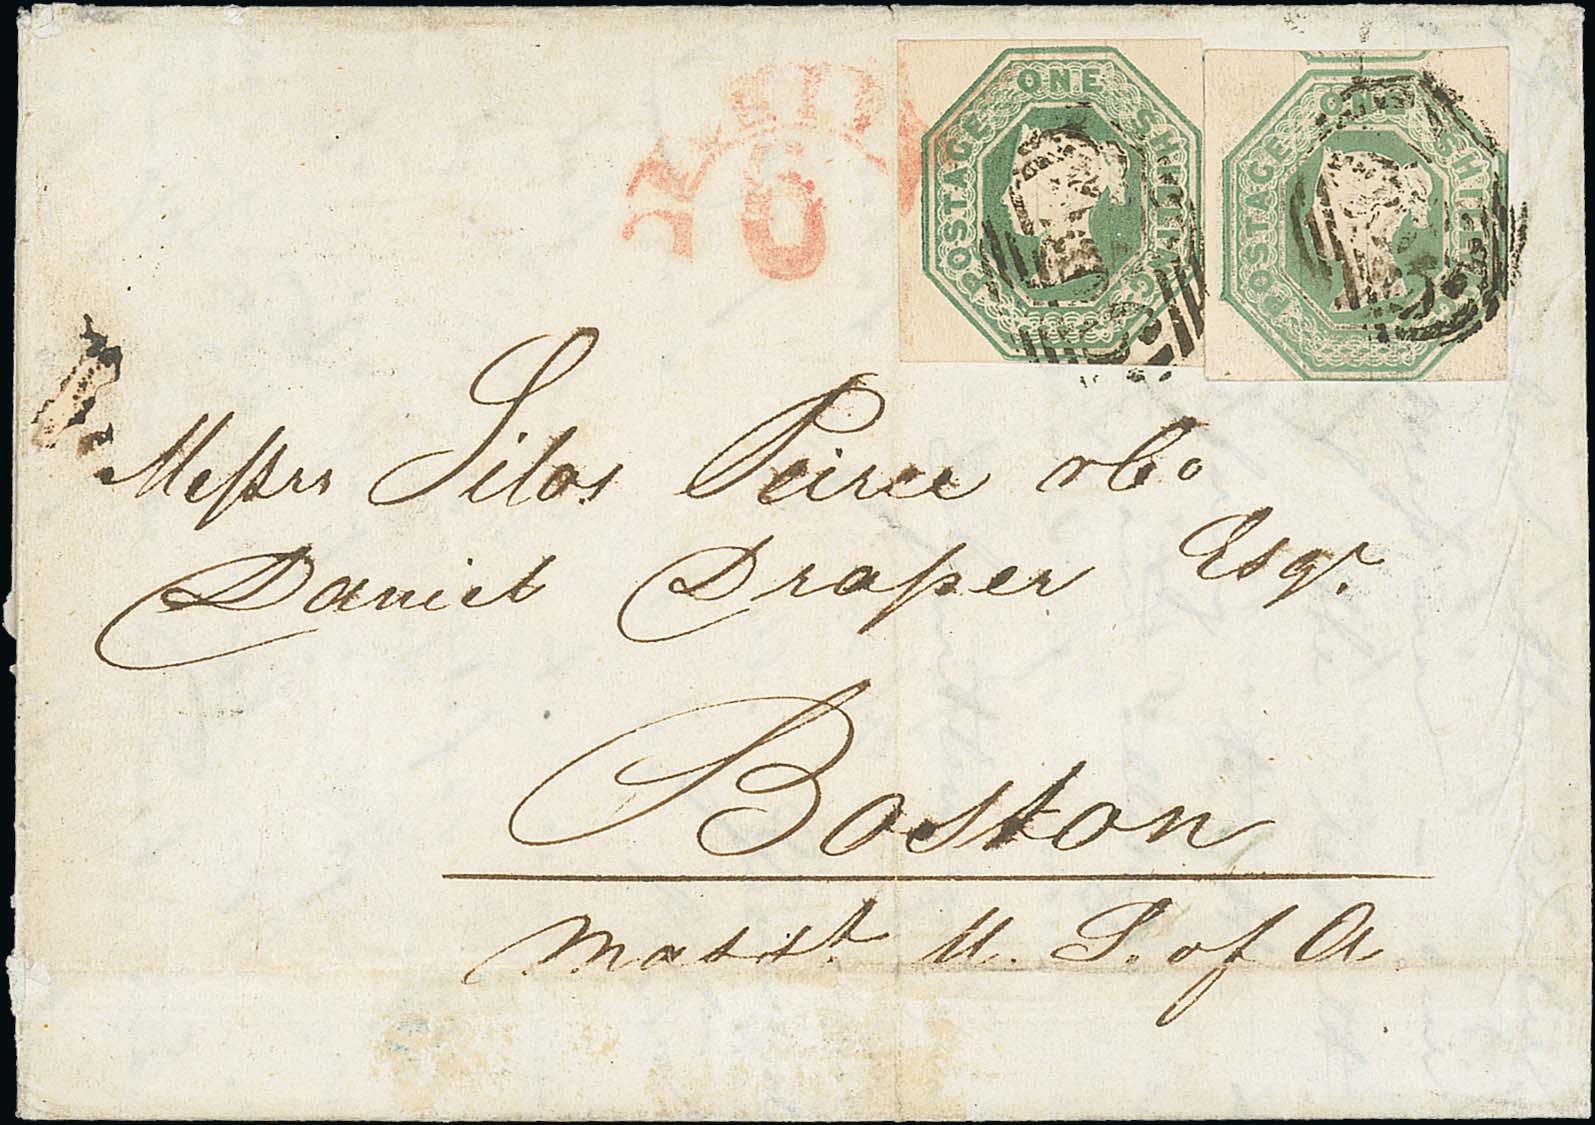 POSTAGE ONE SHILLING
POSTAGE ONE SHILLING
PAID
Messrs Silas Peirce & Co
Daniel Draper Esqr.
Boston
Masst. U. S. of A